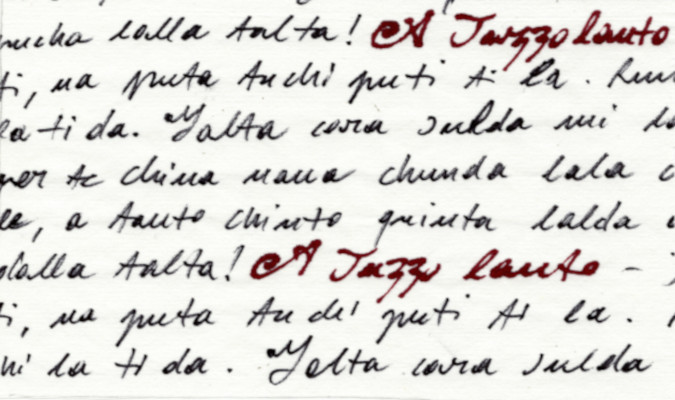 mucha lalla talta! A Juzzo lanto
ti, na puta tuchi puti ti la.
la ti da. Jalta cora sulda mi
ner te china nana chunda lala
la, a tanto chinto quinta lalda
dalla talta! A Juzzo lanto -
ti, na puta tu chi puti ti la.
hi la ti da. Jolta cora sulda